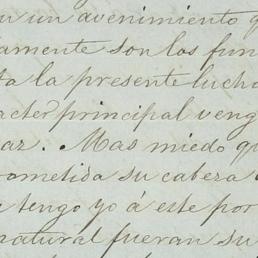 un un avenimiento q
amente son los fun
ta la presente lucha
acter principal veng
az. Mas miedo qu
rometida su cabeza
tengo yo á este por
natural fueran su